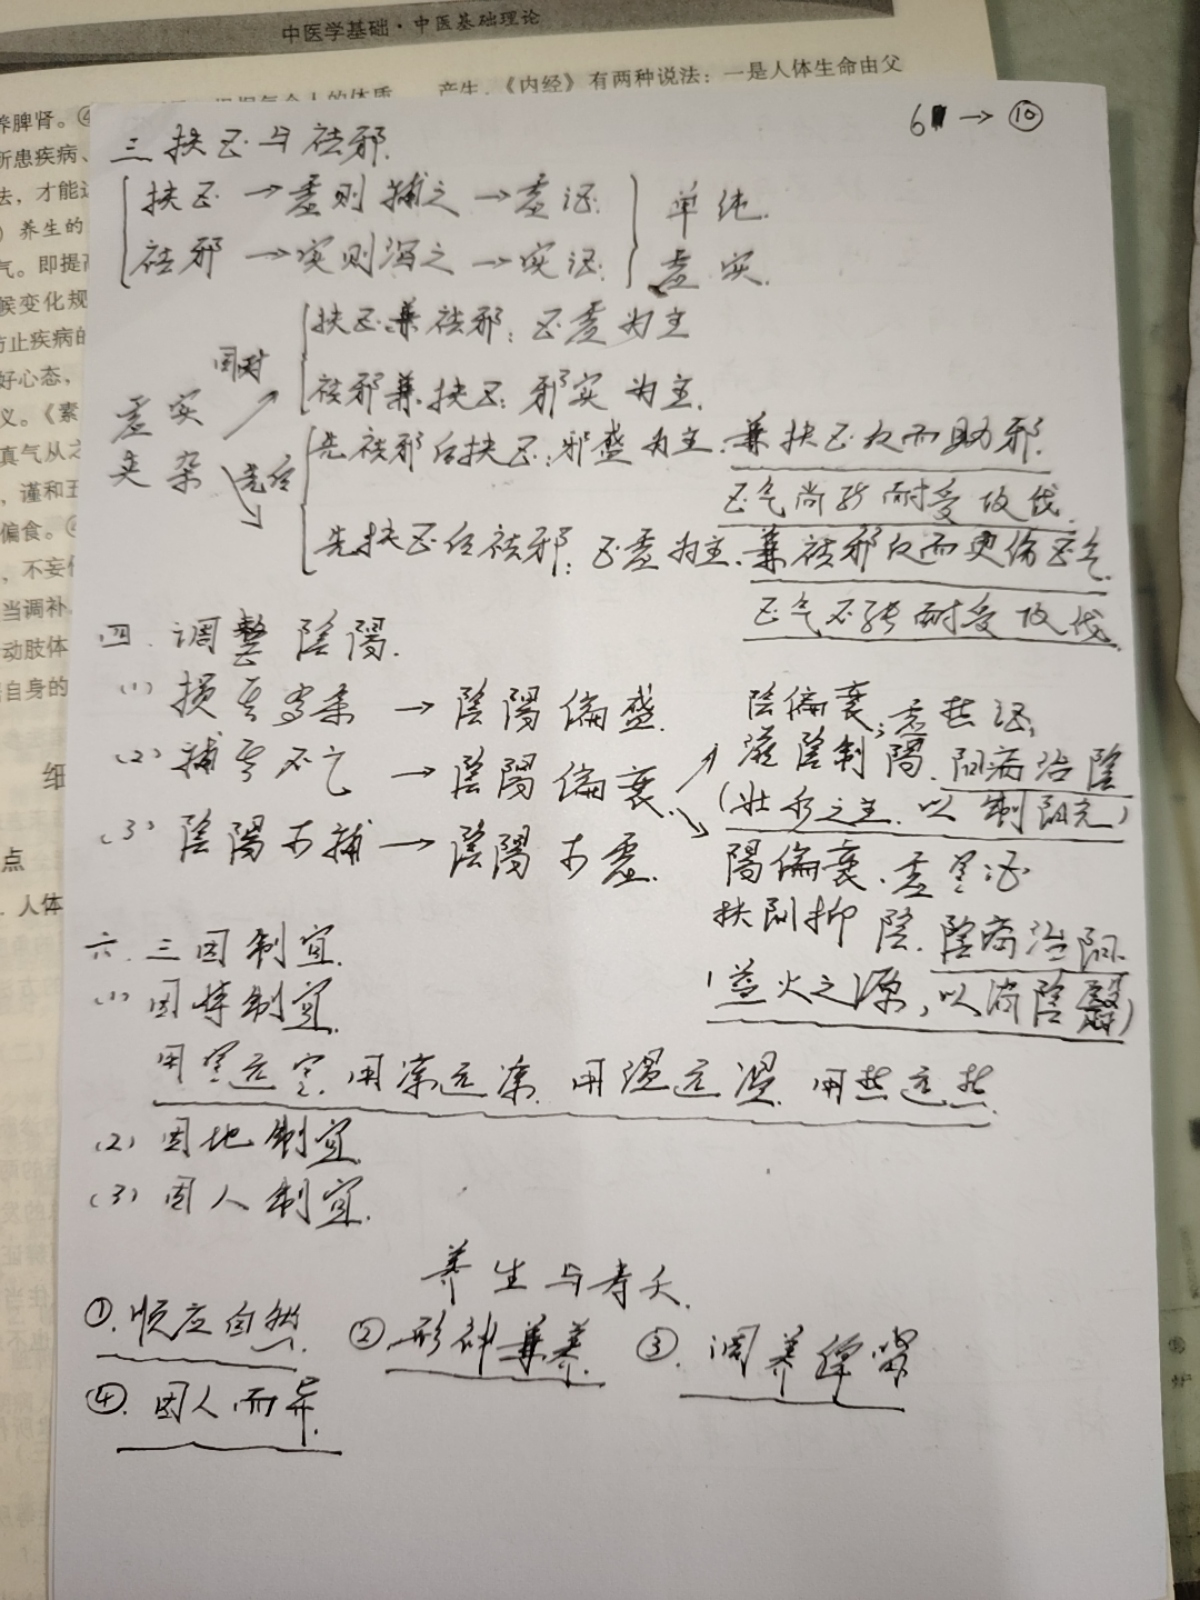 中医学基础·中医基础理论
产生，《内经》有两种说法：一是人体生命由父
养脾肾。
所患疾病、
法，才能达
养生的
气。即提高
候变化规
防止疾病的
好心态，
义。《素
真气从之
，谨和五
偏食。
，不妄作
当调补
动肢体
据自身的
细
点
．人体
6 → ⑩
三 扶正与祛邪.
扶正 → 虚则補之 → 虚证. 单纯.
祛邪 → 实则泻之 → 实证. 虚实.
同时 扶正兼祛邪：正虚为主
祛邪兼扶正：邪实为主.
虚实夹杂
先后 先祛邪后扶正：邪盛为主.兼扶正反而助邪.
正气尚能耐受攻伐.
先扶正后祛邪：正虚为主.兼祛邪反而更伤正气.
正气不能耐受攻伐.
四.调整陰陽.
(1) 损其有余 → 陰陽偏盛.
(2) 補其不足 → 陰陽偏衰.
陰偏衰;虚热证,
滋陰制陽.阳病治陰
(壮水之主.以制阳光)
陽偏衰.虚寒证
扶阳抑陰.陰病治阳.
(益火之源,以消陰翳)
(3) 陰陽双補 → 陰陽双虚.
六.三因制宜.
(1) 因時制宜.
用寒远寒.用凉远凉.用温远温.用热远热.
(2) 因地制宜.
(3) 因人制宜.
养生与寿夭.
①.顺应自然. ②.形神兼养. ③.调养脾腎
④.因人而异.